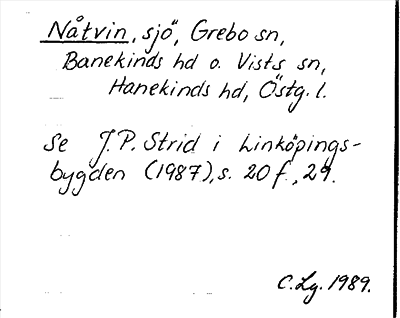 Nåtvin, sjö, Grebo sn,
Banekinds hd o. Vists sn,
Hanekinds hd, Östg. l.
Se J.P. Strid i Linköpings-
bygden (1987), s. 20 f., 29.
C. Lg. 1989.